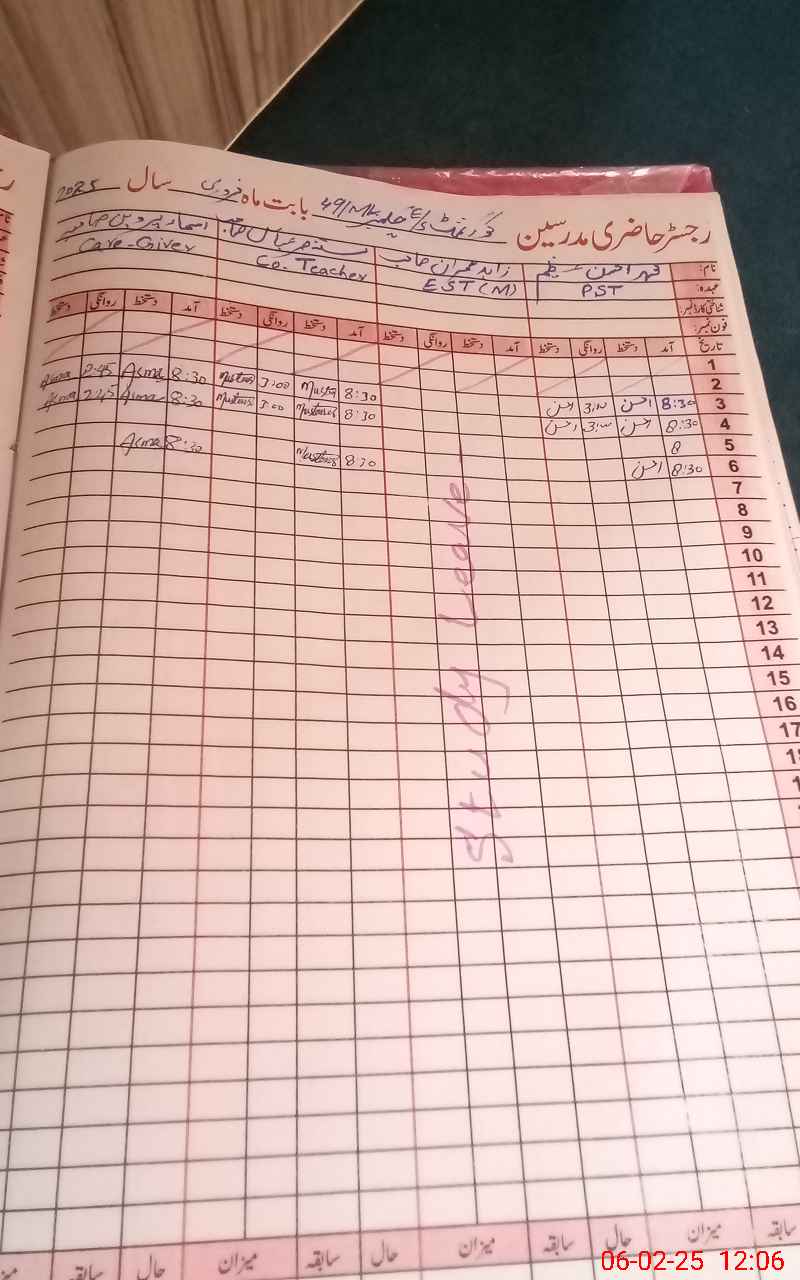 رجسٹر حاضری مدرسین گورنمنٹ E/S 49/M بابت ماہ فروری سال 2025
نام:
زاہد عمران صاحب
عہدہ: PST EST (M) Co. Teacher Care-Giver
شناختی کارڈ نمبر:
فون نمبر:
تاریخ آمد دستخط روانگی دستخط آمد دستخط روانگی دستخط آمد دستخط روانگی دستخط آمد دستخط روانگی دستخط
1
2
3 8:30 احسن احسن 8:30 3:00 8:30 Asma 2:45 Asma
4 8:30 احسن احسن 8:30 3:00 8:30 Asma 2:45 Asma
5 8
6 8:30 احسن 8:30 8:30 Asma
7
8
9
10
11
12
13
14
15
16
17
Study Leave
سابقہ میزان حال سابقہ میزان حال سابقہ میزان حال سابقہ میزان
06-02-25 12:06